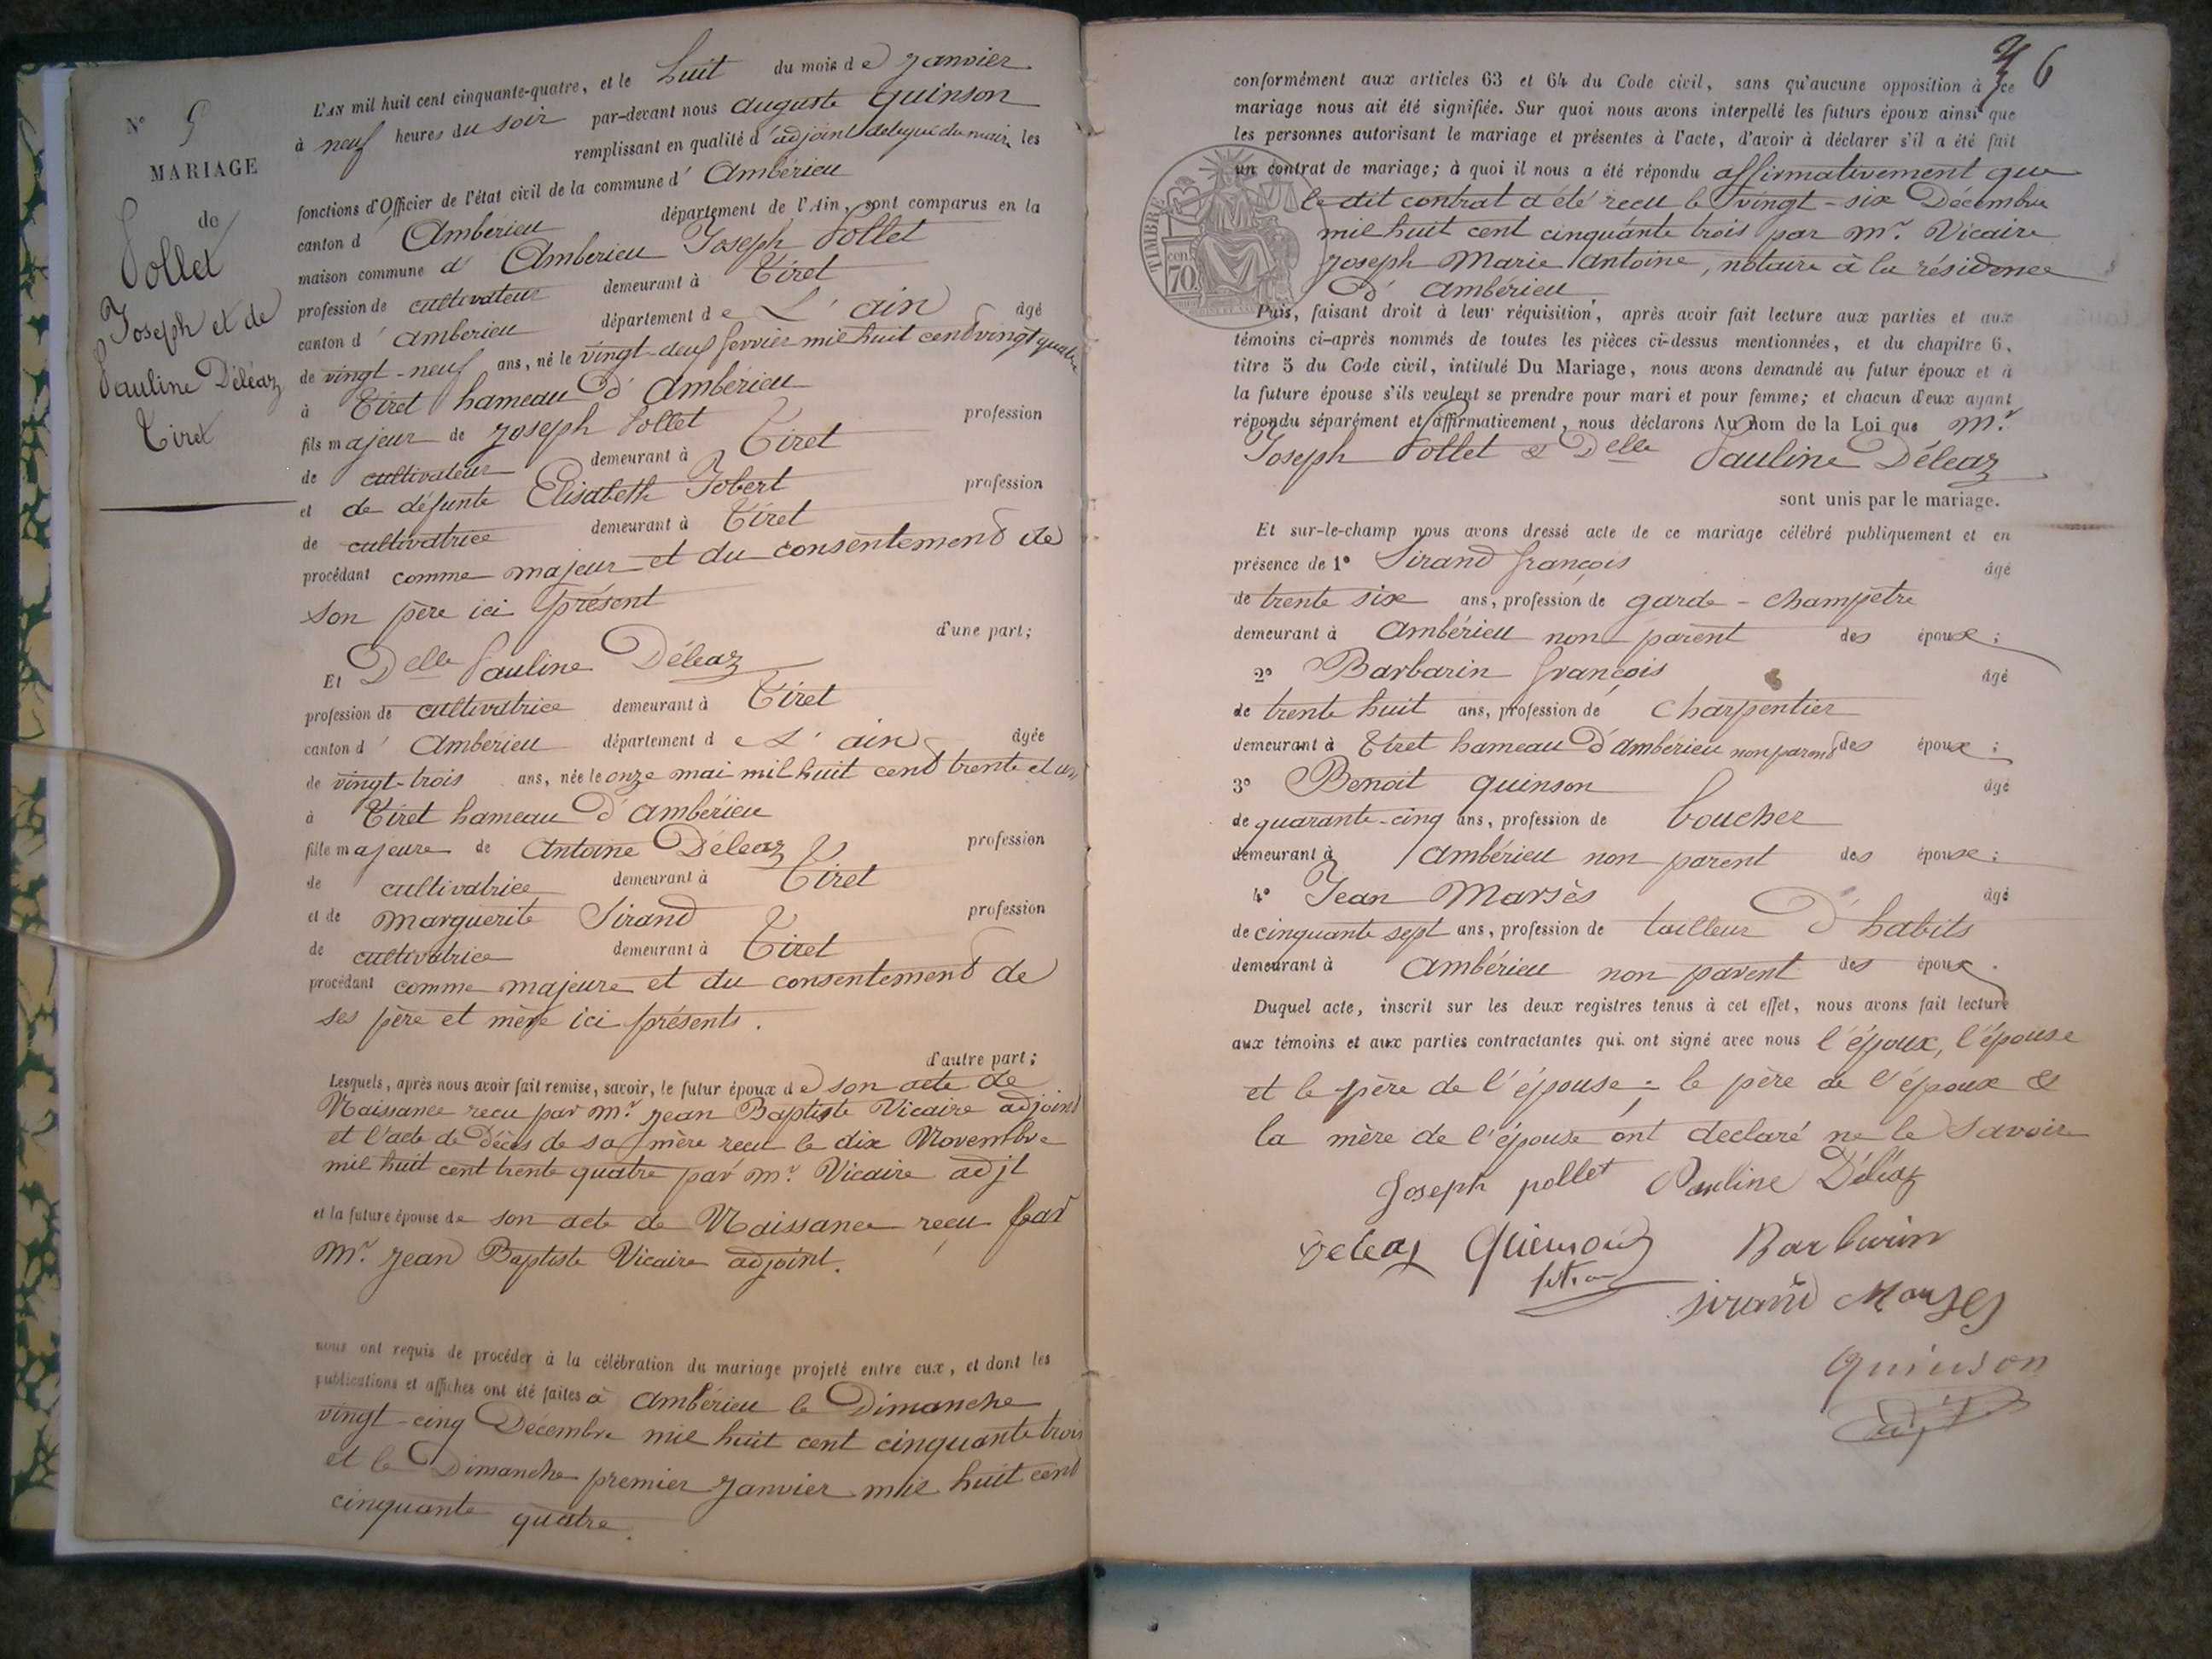 N° 5
MARIAGE
de
Pollet
Joseph et de
Pauline Déléaz
Tiret
L'AN mil huit cent cinquante-quatre, et le huit du mois de Janvier
à neuf heures du soir par-devant nous auguste quinson
remplissant en qualité d'adjoint délégué du maire les
fonctions d'Officier de l'état civil de la commune d' Ambérieu
canton d' Ambérieu département de l'Ain, sont comparus en la
maison commune d' Amberieu Joseph Pollet
profession de cultivateur demeurant à Tiret
canton d' amberieu département de L'ain âgé
de vingt-neuf ans, né le vingt-deux fevrier mil huit cent vingt quatre
à Tiret hameau d'Ambérieu
fils majeur de Joseph Pollet profession
de cultivateur demeurant à Tiret
et de défunte Elisabeth Jobert profession
de cultivatrice demeurant à Tiret
procédant comme majeur et du consentement de
son père ici présent
d'une part;
Et Delle Pauline Déléaz
profession de cultivatrice demeurant à Tiret
canton d' Amberieu département de L'ain âgée
de vingt-trois ans, née le onze mai mil huit cent trente et un
à Tiret hameau d'Ambérieu
fille majeure de Antoine Déléaz profession
de cultivatrice demeurant à Tiret
et de Marguerite Sirand profession
de cultivatrice demeurant à Tiret
procédant comme majeure et du consentement de
ses père et mère ici présents.
d'autre part;
Lesquels, après nous avoir fait remise, savoir, le futur époux de son acte de
Naissance reçu par Mr. Jean Baptiste Vicaire adjoint
et l'acte de Décès de sa mère reçu le dix Novembre
mil huit cent trente quatre par Mr. Vicaire adjt
et la future épouse de son acte de Naissance reçu par
Mr. Jean Baptiste Vicaire adjoint.
nous ont requis de procéder à la célébration du mariage projeté entre eux, et dont les
publications et affiches ont été faites à Ambérieu le Dimanche
vingt-cinq Décembre mil huit cent cinquante trois
et le Dimanche premier Janvier mil huit cent
cinquante quatre.
6
conformément aux articles 63 et 64 du Code civil, sans qu'aucune opposition à ce
mariage nous ait été signifiée. Sur quoi nous avons interpellé les futurs époux ainsi que
les personnes autorisant le mariage et présentes à l'acte, d'avoir à déclarer s'il a été fait
un contrat de mariage; à quoi il nous a été répondu affirmativement que
le dit contrat a été reçu le vingt-six Décembre
mil huit cent cinquante trois par Mr. Vicaire
Joseph Marie Antoine, notaire à la résidence
d'Ambérieu
TIMBRE
cen
70
Puis, faisant droit à leur réquisition, après avoir fait lecture aux parties et aux
témoins ci-après nommés de toutes les pièces ci-dessus mentionnées, et du chapitre 6,
titre 5 du Code civil, intitulé Du Mariage, nous avons demandé au futur époux et à
la future épouse s'ils veulent se prendre pour mari et pour femme; et chacun d'eux ayant
répondu séparément et affirmativement, nous déclarons Au nom de la Loi que Mr.
Joseph Pollet & Delle Pauline Déléaz
sont unis par le mariage.
Et sur-le-champ nous avons dressé acte de ce mariage célébré publiquement et en
présence de 1° Sirand françois âgé
de trente six ans, profession de garde-champetre
demeurant à Ambérieu non parent des épouse;
2° Barbarin françois âgé
de trente huit ans, profession de charpentier
demeurant à Tiret hameau d'ambérieu non parent des époux;
3° Benoit quinson âgé
de quarante-cinq ans, profession de boucher
demeurant à Ambérieu non parent des épouse;
4° Jean Marsès âgé
de cinquante sept ans, profession de tailleur d'habits
demeurant à Ambérieu non parent des époux.
Duquel acte, inscrit sur les deux registres tenus à cet effet, nous avons fait lecture
aux témoins et aux parties contractantes qui ont signé avec nous l'époux, l'épouse
et le père de l'épouse; le père de l'époux &
la mère de l'épouse ont declaré ne le savoir
Joseph pollet Pauline Déléaz
Deleaz Barbarin
Sirand Marses
Quinson